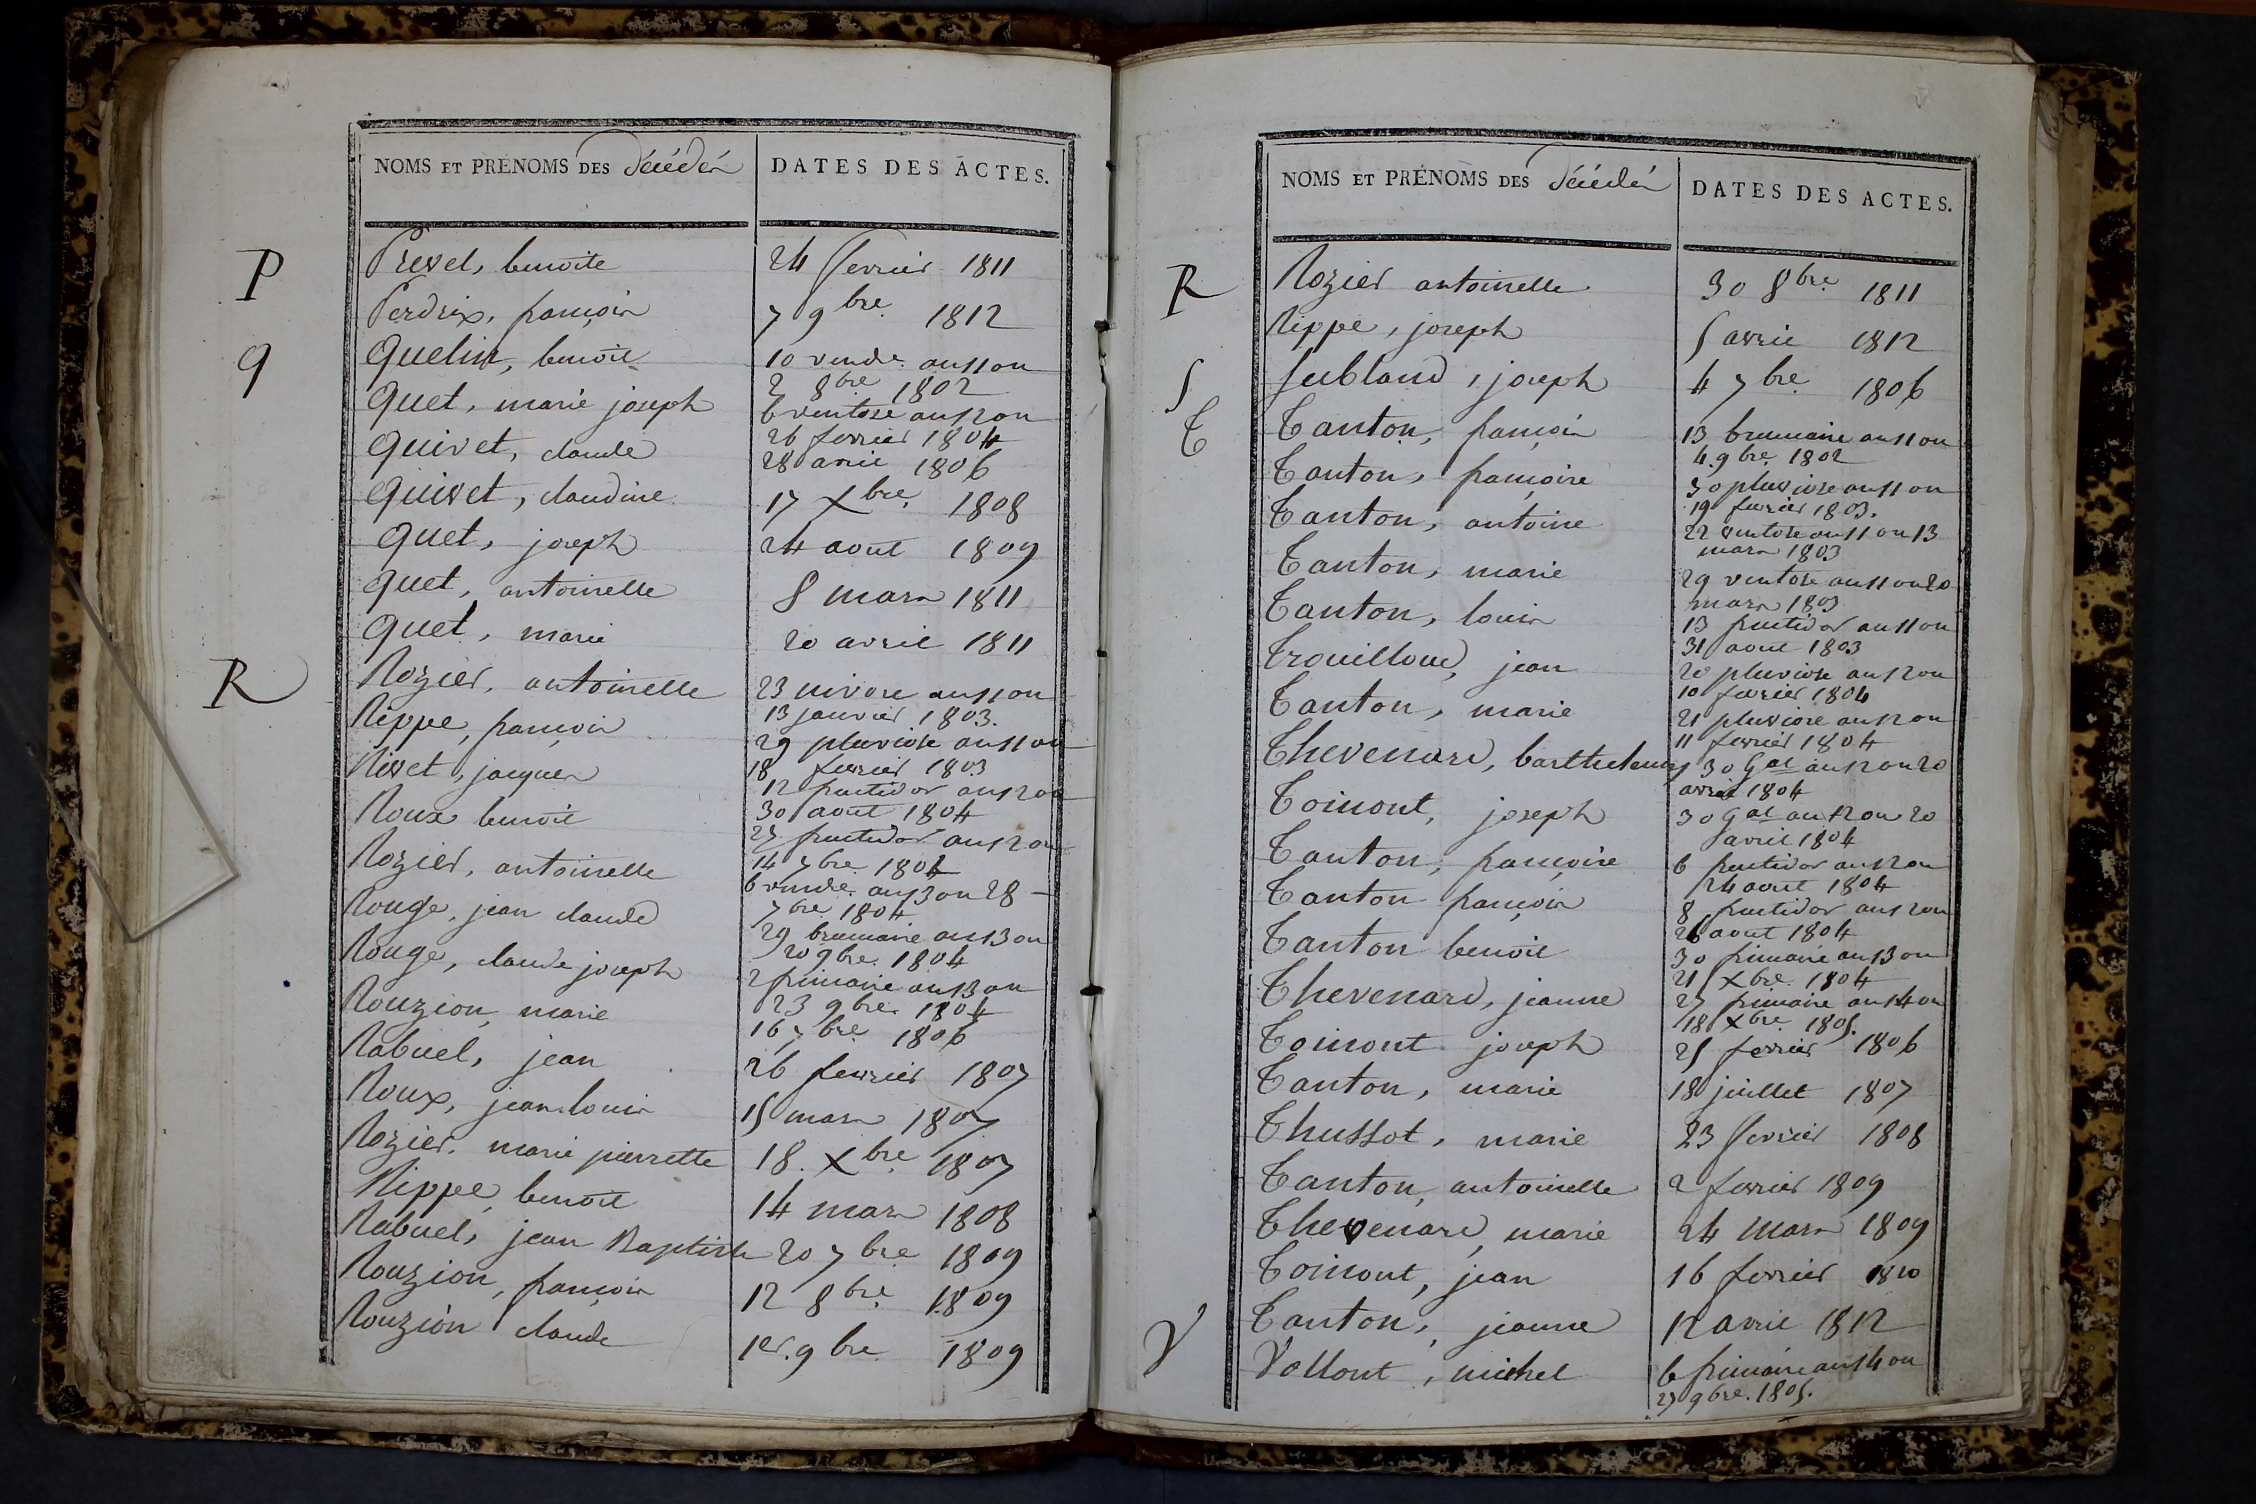 NOMS ET PRÉNOMS DES Décédés
DATES DES ACTES.
P
Prevel, benoite 24 fevrier 1811
Perdrix, françois 7 9bre 1812
Q
Quelin, benoit 10 vendre. an 11 ou
2 8bre 1802
Quet, marie joseph 6 ventose an 12 ou
26 fevrier 1804
Quivet, claude 28 avril 1806
Quivet, claudine 17 Xbre 1808
Quet, joseph 24 aout 1809
Quet, antoinette 8 mars 1811
Quet, marie 20 avril 1811
R
Rozier, antoinette 23 nivose an 11 ou
13 janvier 1803.
Rippe, françois 29 pluviose an 11 ou
18 fevrier 1803
Rivet, jacques 12 fructidor an 12 ou
30 aout 1804
Roux benoit 27 fructidor an 12 ou
14 7bre 1804
Rozier, antoinette 6 vendre. an 13 ou 28
7bre 1804
Rouge, jean claude 29 brumaire an 13 ou
20 9bre. 1804
Rouge, claude joseph 2 frimaire an 13 ou
23 9bre. 1804
Rouzion, marie 16 7bre 1806
Rabuel, jean 26 fevrier 1807
Roux, jean louis 15 mars 1807
Rozier, marie pierrette 18. Xbre 1807
Rippe, benoit 14 mars 1808
Rabuel, jean Baptiste 20 7bre 1809
Rouzion, françois 12 8bre 1809
Rouzion claude 1er. 9bre 1809
NOMS ET PRÉNOMS DES Décédés
DATES DES ACTES.
R
Rozier antoinette 30 8bre 1811
Rippe, joseph 5 avril 1812
S
Subland, joseph 4 7bre 1806
T
Tanton, françois 13 brumaire an 11 ou
4. 9bre 1802
Tanton, françoise 30 pluviose an 11 ou
19 fevrier 1803.
Tanton, antoine 22 ventose an 11 ou 13
mars 1803
Tanton, marie 29 ventose an 11 ou 20
mars 1803
Tanton, louis 13 fructidor an 11 ou
31 aout 1803
Trouilloud, jean 20 pluviose an 12 ou
10 fevrier 1804
Tanton, marie 21 pluviose an 12 ou
11 fevrier 1804
Thevenard, barthelemy 30 Gal an 12 ou 20
avril 1804
Toinont, joseph 30 Gal an 12 ou 20
avril 1804
Tanton, françoise 6 fructidor an 12 ou
24 aout 1804
Tanton françois 8 fructidor an 12 ou
26 aout 1804
Tanton benoit 30 frimaire an 13 ou
21 Xbre. 1804
Thevenard, jeanne 27 frimaire an 14 ou
18 Xbre 1805.
Toinont joseph 25 fevrier 1806
Tanton, marie 18 juillet 1807
Thussot, marie 23 fevrier 1808
Tanton, antoinette 2 fevrier 1809
Thevenard, marie 24 mars 1809
Toinont, jean 16 fevrier 1810
Tanton, jeanne 12 avril 1812
V
Vollont, michel 6 frimaire an 14 ou
27 9bre. 1805.